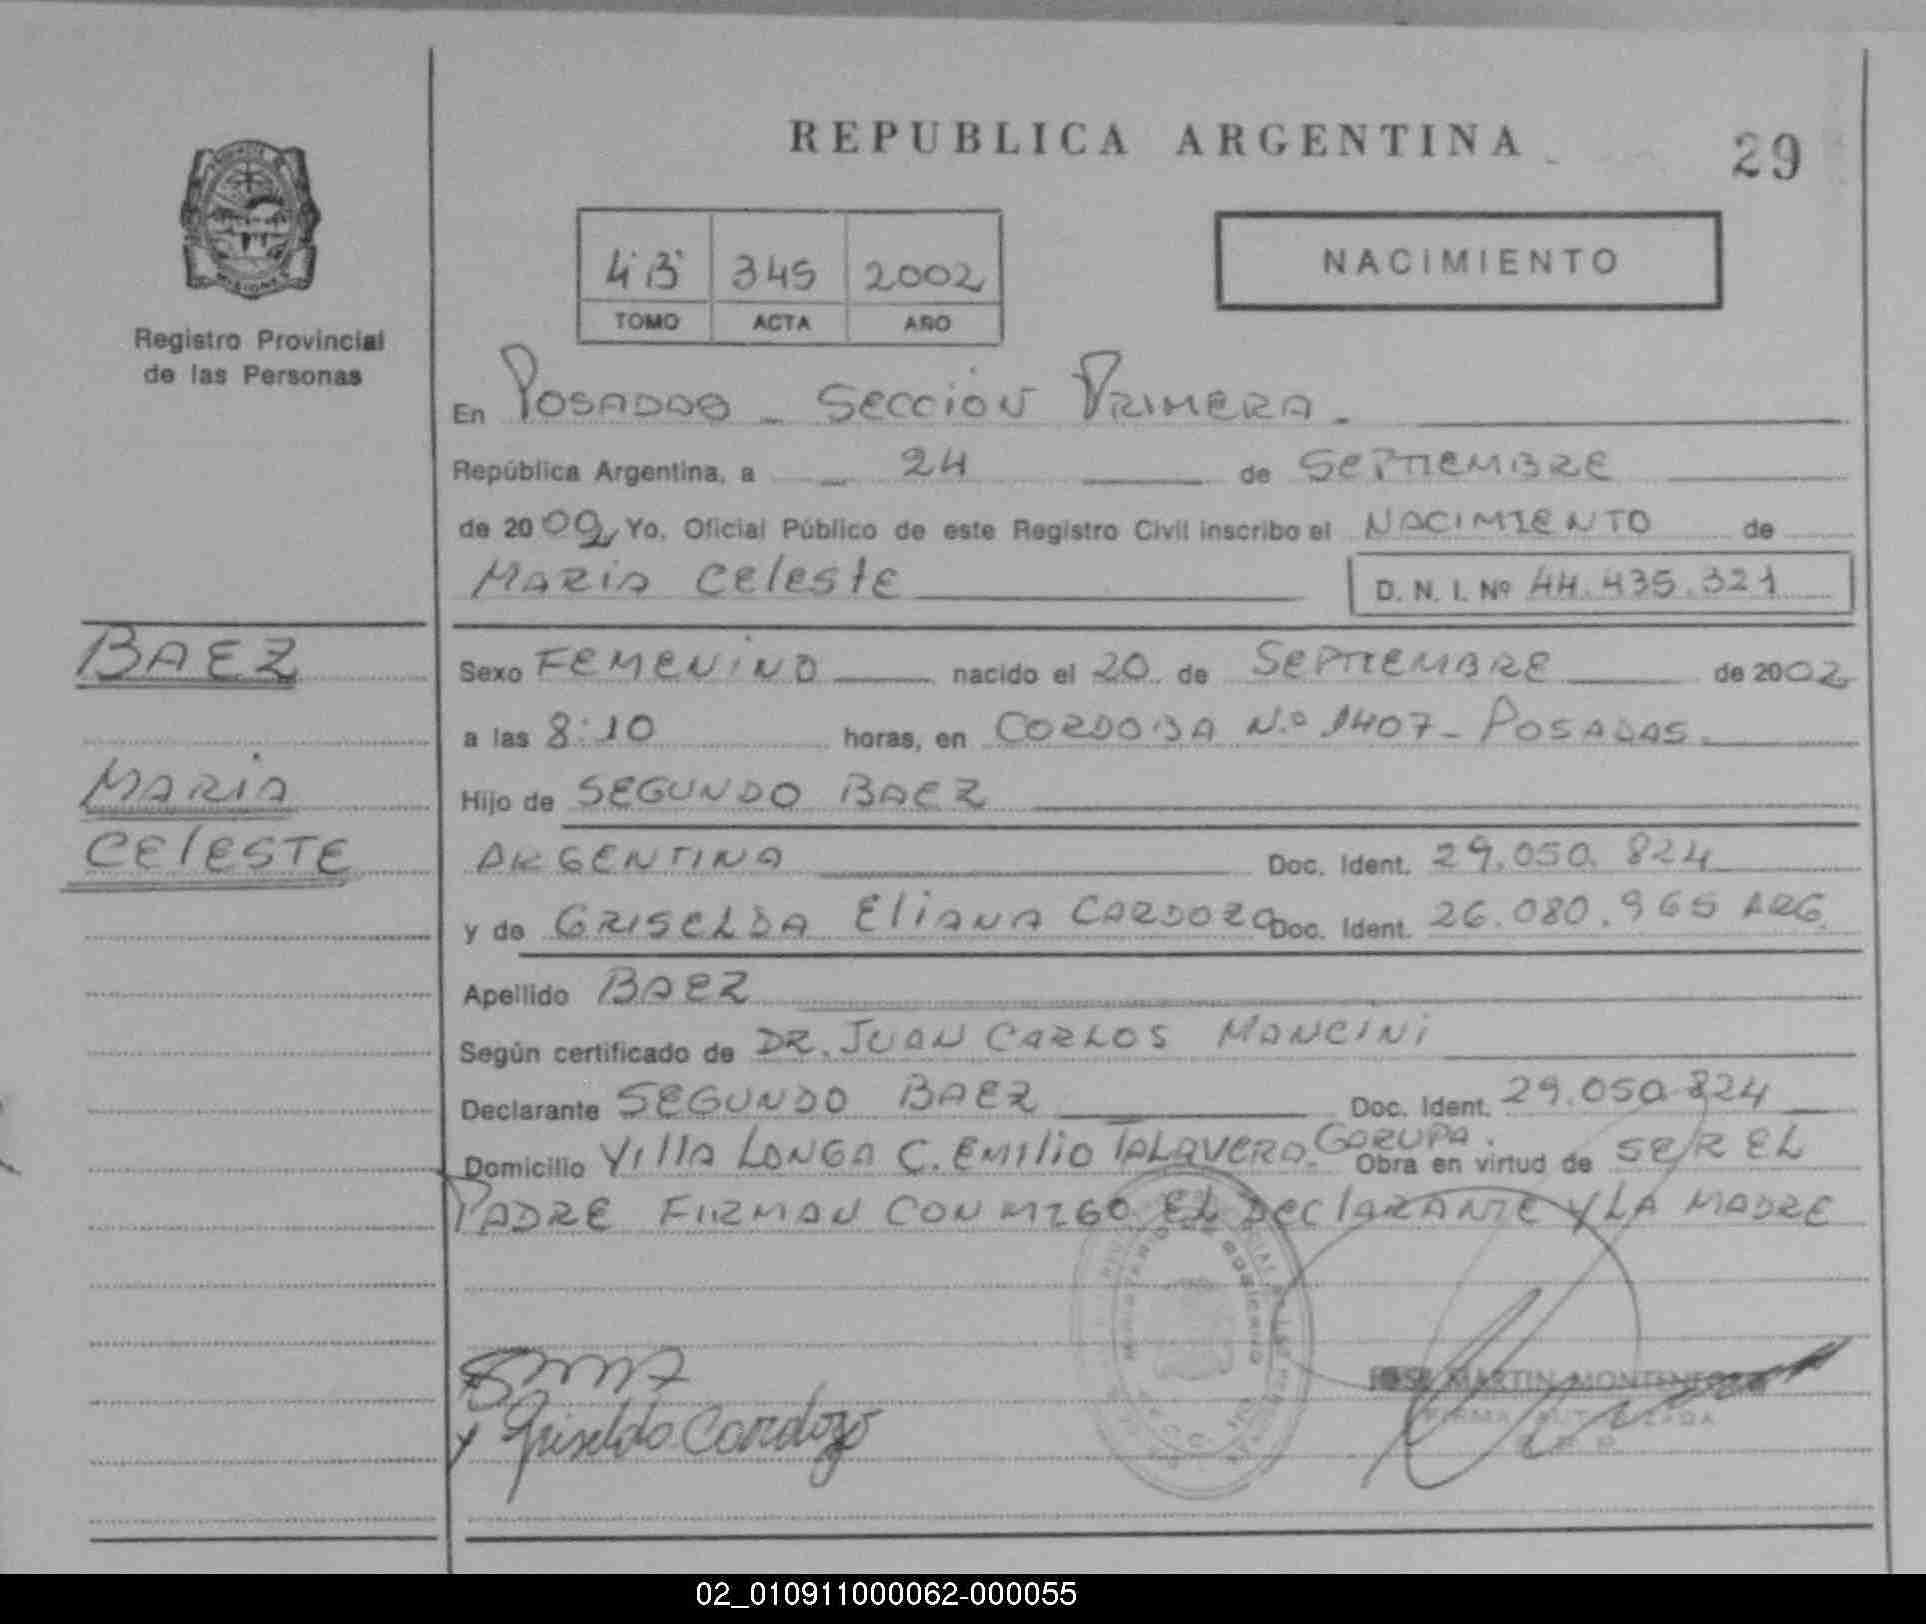 REPUBLICA ARGENTINA
29
4 "B" 345 2002
TOMO ACTA AÑO
NACIMIENTO
Registro Provincial
de las Personas
En POSADAS - SECCION PRIMERA.
República Argentina, a 24 de SEPTIEMBRE
de 2002 Yo, Oficial Público de este Registro Civil inscribo el NACIMIENTO de
MARIA CELESTE D. N. I. Nº 44.435.321
BAEZ
MARIA
CELESTE
Sexo FEMENINO nacido el 20 de SEPTIEMBRE de 2002
a las 8:10 horas, en CORDOBA N.º 1407 - POSADAS
Hijo de SEGUNDO BAEZ
ARGENTINA Doc. Ident. 29.050.824
y de GRISELDA ELIANA CARDOZO Doc. Ident. 26.080.965 ARG.
Apellido BAEZ
Según certificado de DR. JUAN CARLOS MANCINI
Declarante SEGUNDO BAEZ Doc. Ident. 29.050.824
Domicilio VILLA LONGA C. EMILIO TALAVERA. GARUPA. Obra en virtud de SER EL
PADRE FIRMAN CONMIGO EL DECLARANTE Y LA MADRE
JOSE MARTIN MONTENEGRO
FIRMA AUTORIZADA
Griselda Cardozo
02_010911000062-000055